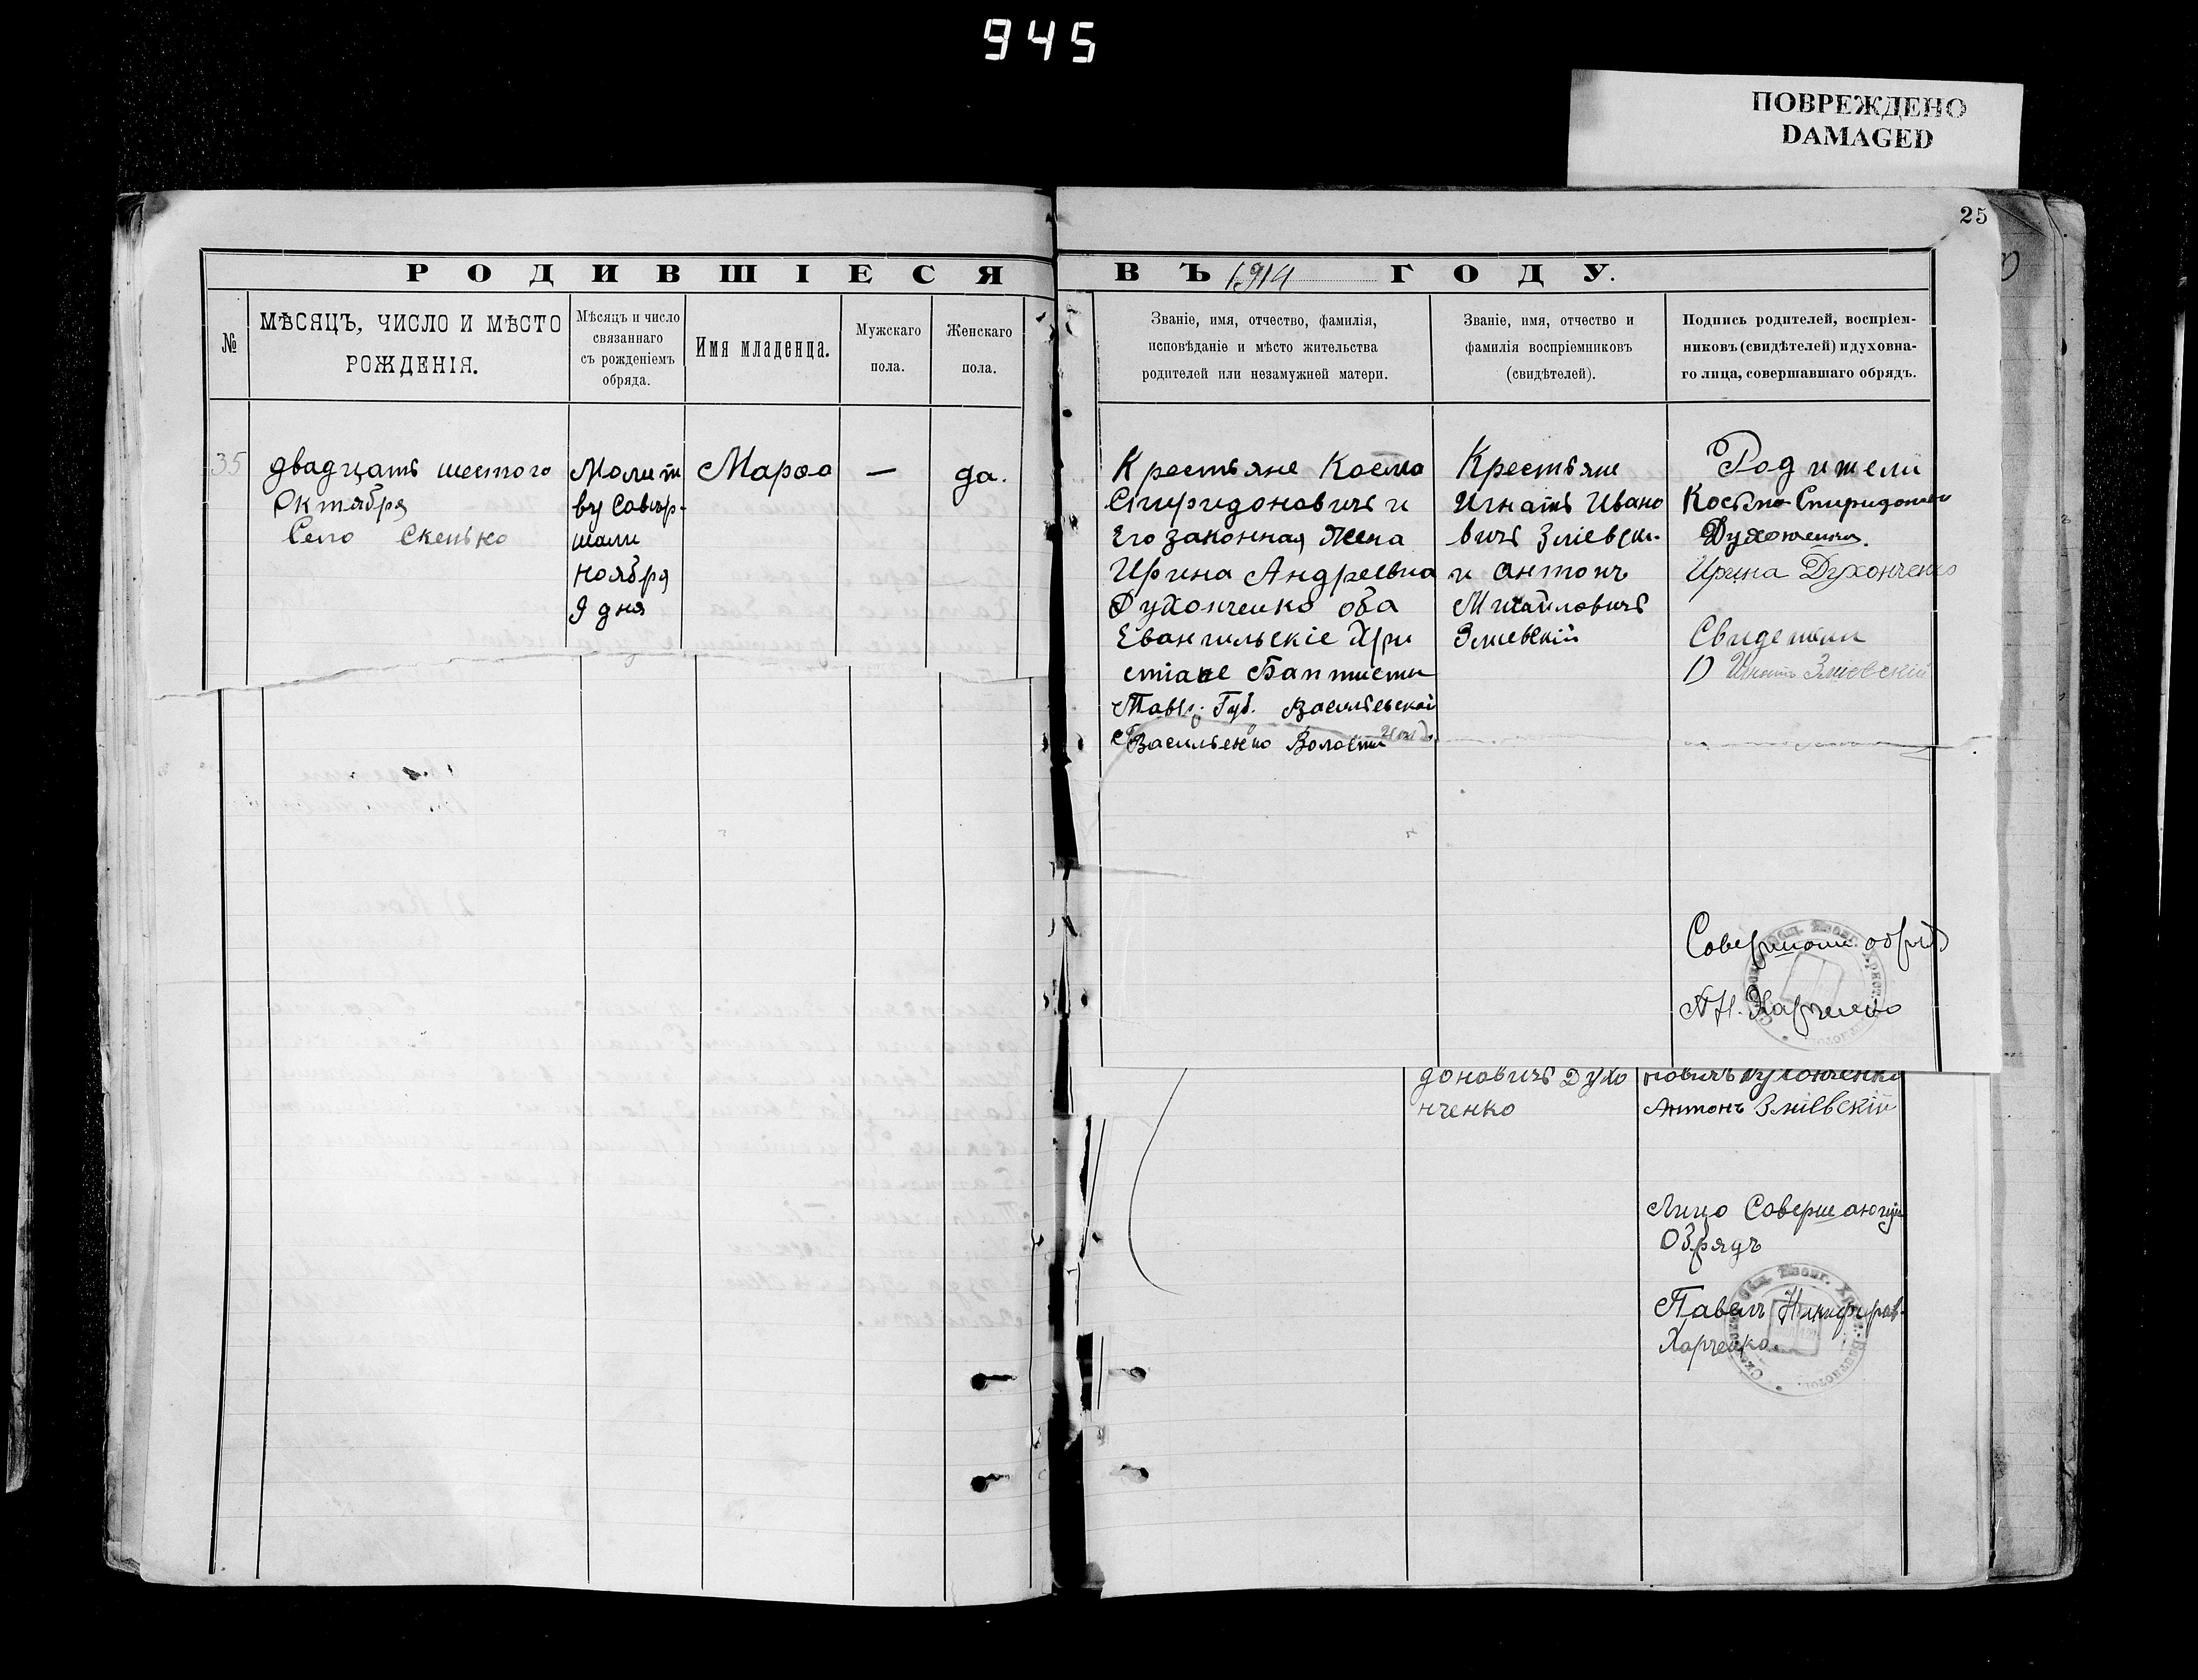 945
ПОВРЕЖДЕНО
DAMAGED
25
РОДИВШІЕСЯ
ВЪ 1914 ГОДУ.
№
МѢСЯЦЪ, ЧИСЛО И МѢСТО
РОЖДЕНІЯ.
Мѣсяцъ и число
связаннаго
съ рожденіемъ
обряда.
Имя младенца.
Мужскаго
пола.
Женскаго
пола.
Званіе, имя, отчество, фамилія,
исповѣданіе и мѣсто жительства
родителей или незамужней матери.
Званіе, имя, отчество и
фамилія воспріемниковъ
(свидѣтелей).
Подпись родителей, воспріем-
никовъ (свидѣтелей) и духовна-
го лица, совершавшаго обрядъ.
35
двадцать шестого
Октября
Село
Молит
ву
шали
ноября
9 дня
Марѳа
—
да.
Крестьяне Косма
Спиридоновичъ и
Его законная Жена
Ирина Андреевна
Духонченко оба
Евангильскіе Хри
стіане Баптисты
Тавр. Губ. Васильевской
Волости
Крестьяне
Игнатъ Ивано
вичъ
и Антонъ
Михайловичъ
Зміевскій
Родители
Косьма
Ирина Духонченко
Свидетели
1) Игнатъ Зміевскій
обрядъ
П Н. Харченко
доновичъ Духо
нченко
новичъ Духонченко
Антонъ Зміевскій
Лицо
Обрядъ
Павелъ
Харченко.